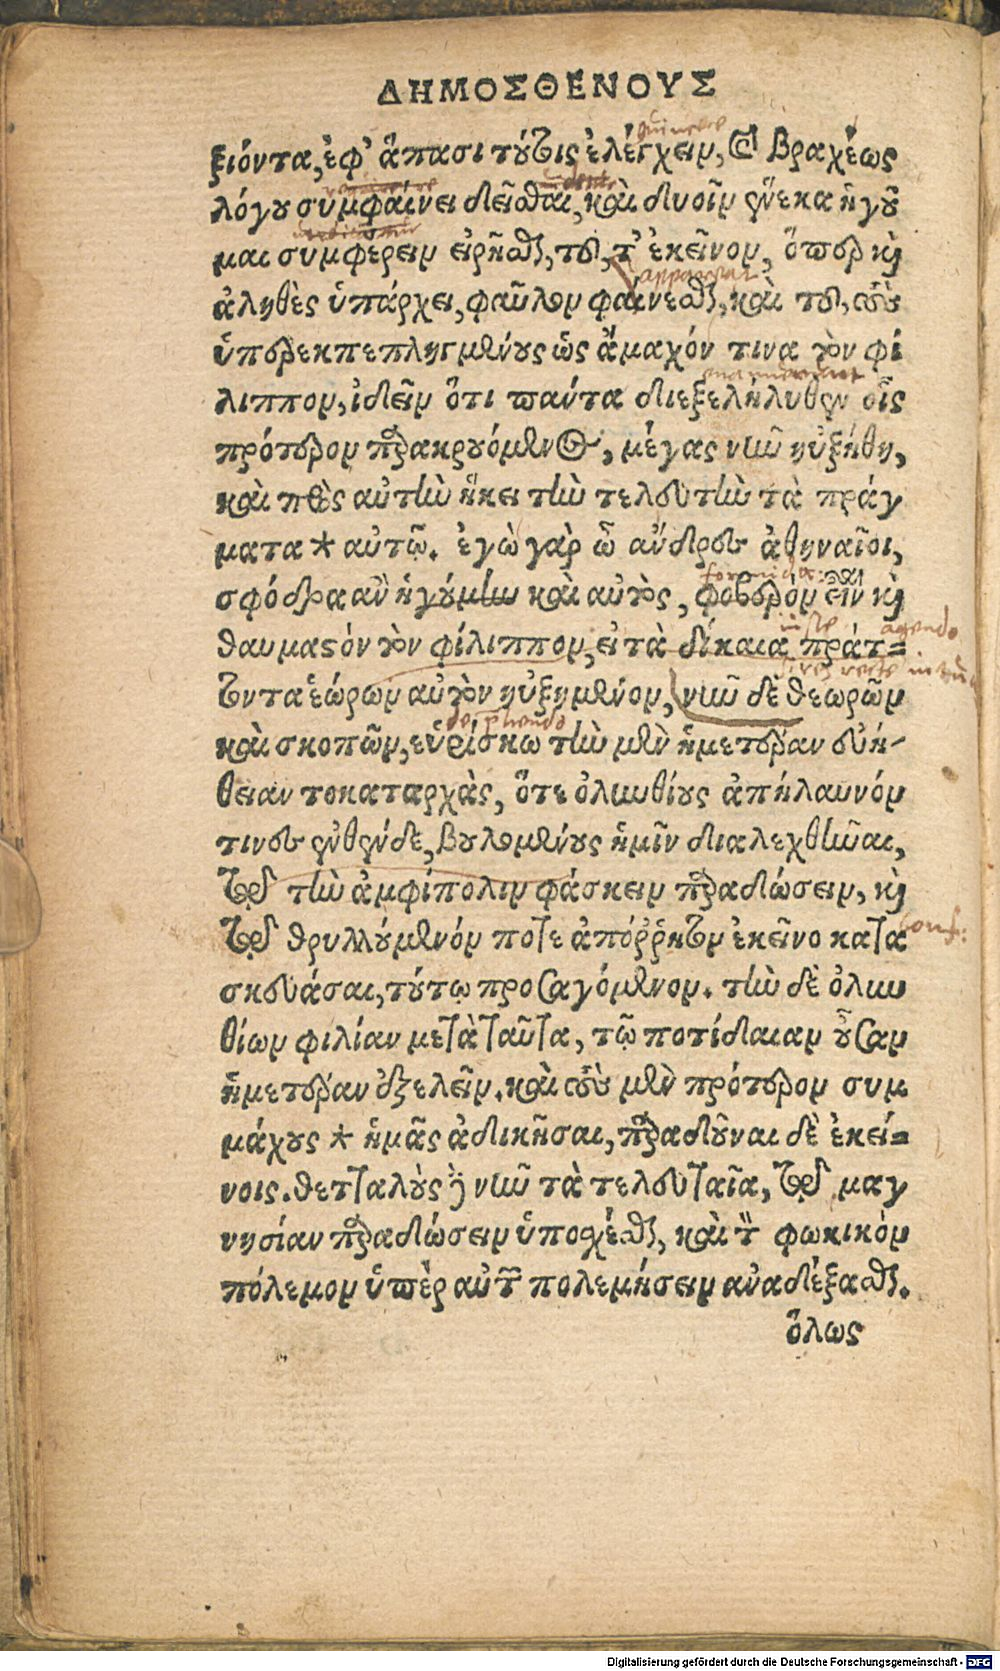 ΔΗΜΟΣΘΕΝΟΥΣ
ξιόντα, ἐφ' ἅπασι τούτοις ἐλέγχειν, καὶ βραχέως
λόγου συμφαίνει δεῖσθαι, καὶ δυοῖν ἕνεκα ἡγοῦ
μαι συμφέρειν εἰρῆσθαι, τοῦ, τ' ἐκεῖνον, ὅπερ καὶ
ἀληθὲς ὑπάρχει, φαῦλον φαίνεσθαι, καὶ τοῦ, τοὺς
ὑπερεκπεπληγμένους ὡς ἄμαχόν τινα τὸν φί
λιππον, ἰδεῖν ὅτι πάντα διεξελήλυθεν οἷς
πρότερον παρακρουόμενος, μέγας νῦν ηὐξήθη,
καὶ πρὸς αὐτὴν ἥκει τὴν τελευτὴν τὰ πράγ
ματα * αὐτῷ. ἐγὼ γὰρ ὦ ἄνδρες ἀθηναῖοι,
σφόδρα ἂν ἡγούμην καὶ αὐτὸς, φοβερὸν εἶναι καὶ
θαυμαστὸν τὸν φίλιππον, εἰ τὰ δίκαια πράτ=
τοντα ἑώρων αὐτὸν ηὐξημένον, νῦν δὲ θεωρῶν
καὶ σκοπῶν, εὑρίσκω τὴν μὲν ἡμετέραν εὐή-
θειαν τοκαταρχὰς, ὅτε ὀλυνθίους ἀπήλαυνόν
τινες ἐνθένδε, βουλομένους ἡμῖν διαλεχθῆναι,
τῷ τὴν ἀμφίπολιν φάσκειν παραδώσειν, καὶ
τῷ θρυλλούμενόν ποτε ἀπόῤῥητον ἐκεῖνο κατα
σκευάσαι, τούτῳ προσαγόμενον. τὴν δὲ ὀλυν
θίων φιλίαν μετὰ ταῦτα, τῷ ποτίδαιαν οὖσαν
ἡμετέραν ἐξελεῖν, καὶ τοὺς μὲν πρότερον συμ
μάχους * ἡμᾶς ἀδικῆσαι, παραδοῦναι δὲ ἐκεί=
νοις. θετταλοὺς δὲ νῦν τὰ τελευταῖα, τῷ μαγ
νησίαν παραδώσειν ὑποσχέσθαι, καὶ τὸν φωκικὸν
πόλεμον ὑπὲρ αὐτῶν πολεμήσειν ἀναδέξασθαι.
ὅλως
Digitalisierung gefördert durch die Deutsche Forschungsgemeinschaft - DFG